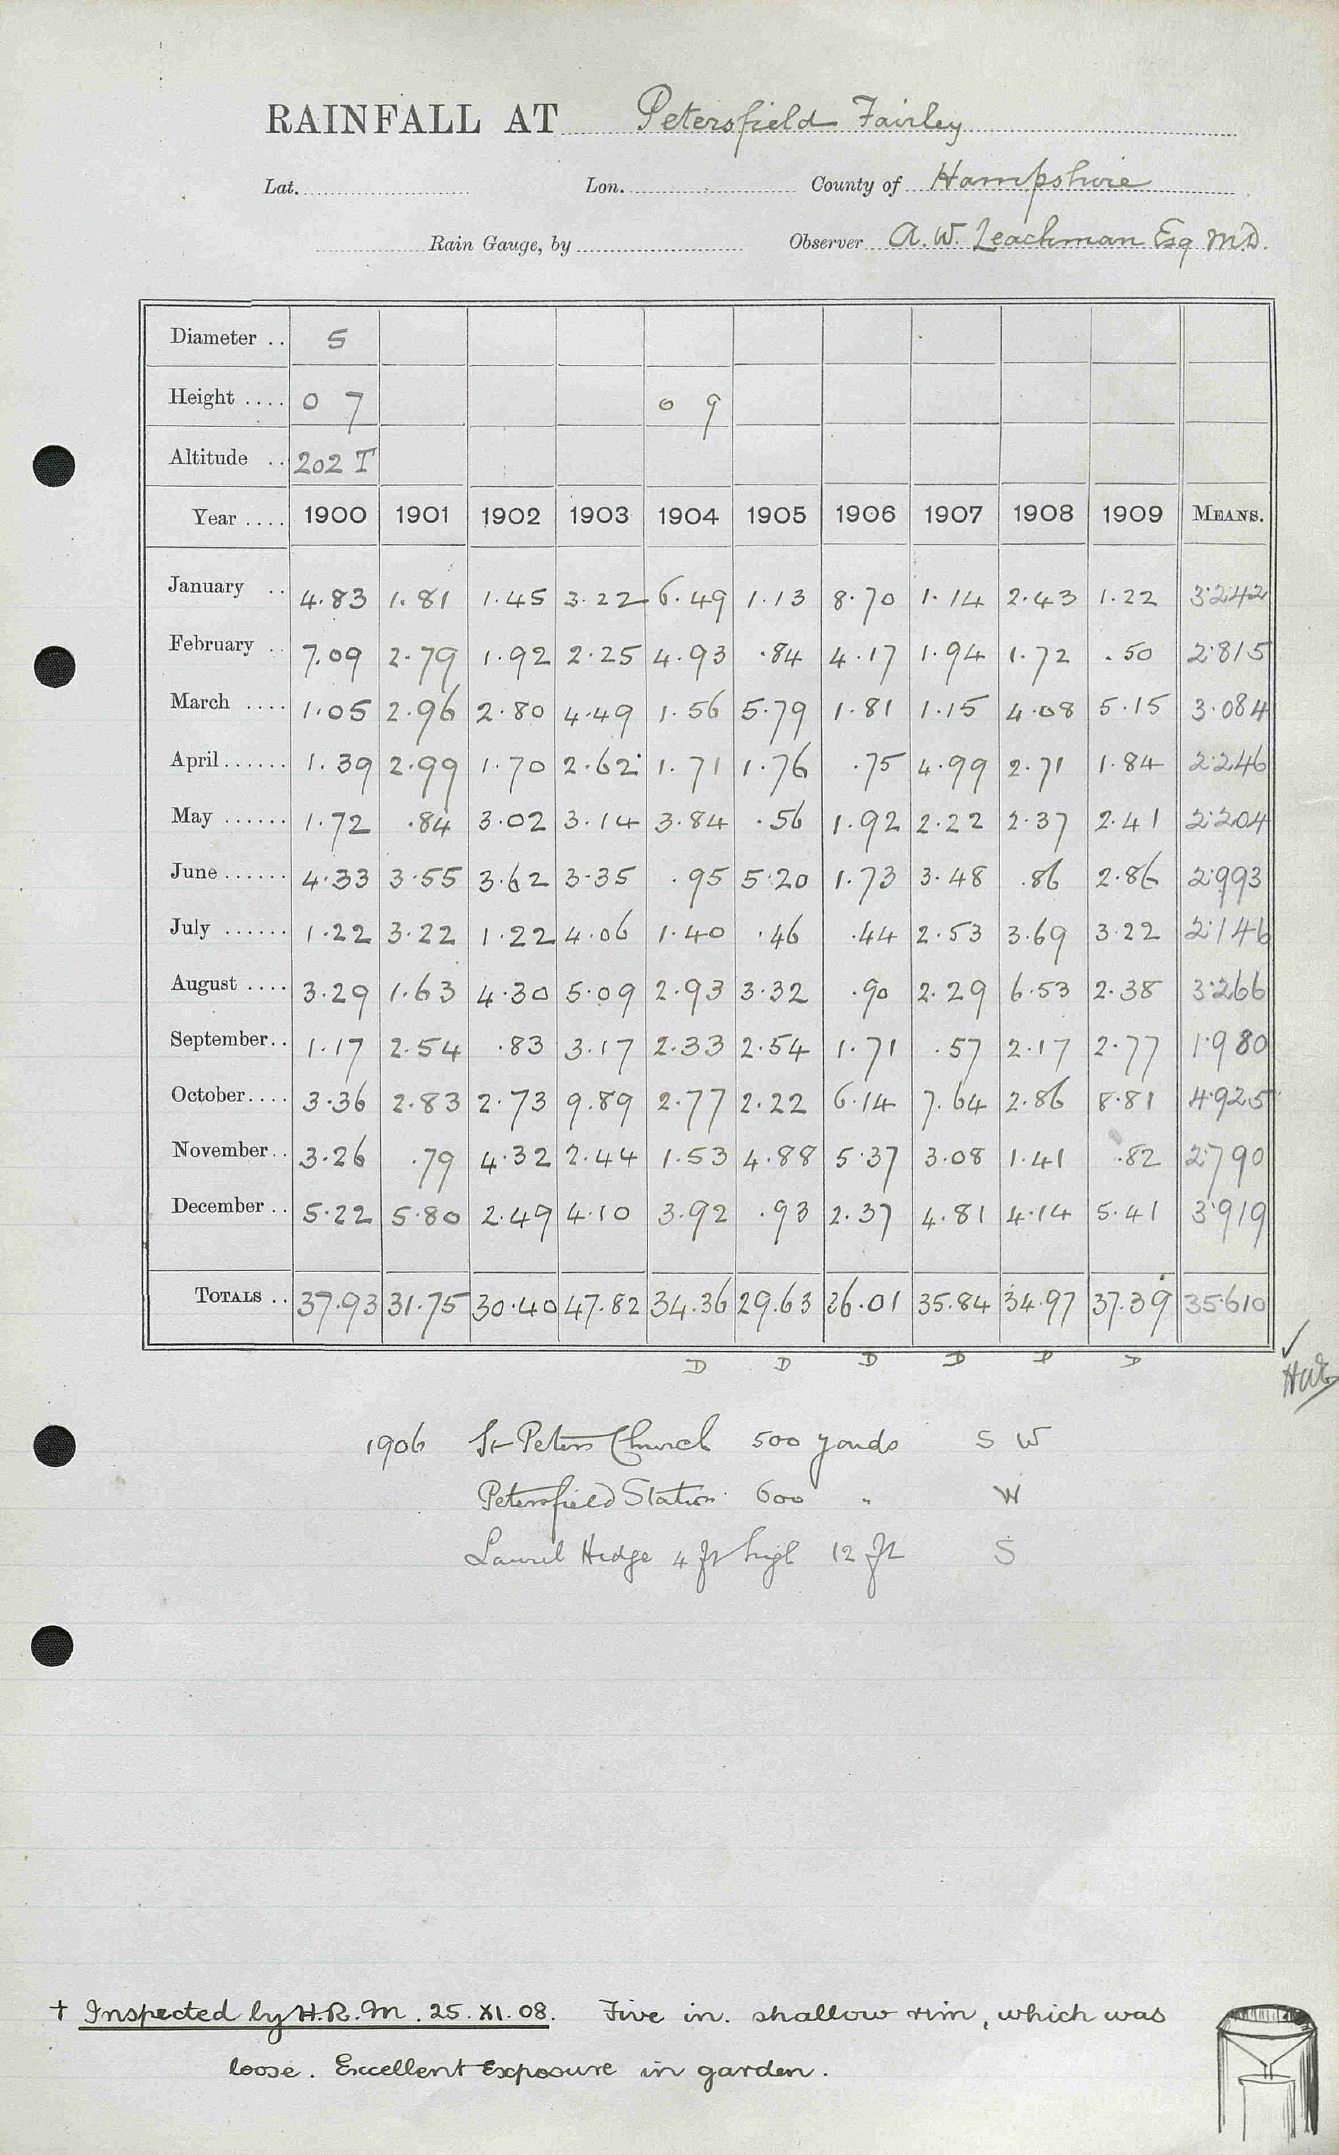 RAINFALL AT Petersfield Fairley
Lat. Lon. County of Hampshire
Rain Gauge, by Observer A. W. Leachman Esq M.D.
Diameter .. 5
Height .... 0 7 0 9
Altitude .. 202 T
Year .... 1900 1901 1902 1903 1904 1905 1906 1907 1908 1909 MEANS.
January .. 4.83 1.81 1.45 3.22 6.49 1.13 8.70 1.14 2.43 1.22 3.242
February .. 7.09 2.79 1.92 2.25 4.93 .84 4.17 1.94 1.72 .50 2.815
March .... 1.05 2.96 2.80 4.49 1.56 5.79 1.81 1.15 4.08 5.15 3.084
April ...... 1.39 2.99 1.70 2.62 1.71 1.76 .75 4.99 2.71 1.84 2.246
May ...... 1.72 .84 3.02 3.14 3.84 .56 1.92 2.22 2.37 2.41 2.204
June ...... 4.33 3.55 3.62 3.35 .95 5.20 1.73 3.48 .86 2.86 2.993
July ...... 1.22 3.22 1.22 4.06 1.40 .46 .44 2.53 3.69 3.22 2.146
August .... 3.29 1.63 4.30 5.09 2.93 3.32 .90 2.29 6.53 2.38 3.266
September .. 1.17 2.54 .83 3.17 2.33 2.54 1.71 .57 2.17 2.77 1.980
October .... 3.36 2.83 2.73 9.89 2.77 2.22 6.14 7.64 2.86 8.81 4.925
November .. 3.26 .79 4.32 2.44 1.53 4.88 5.37 3.08 1.41 .82 2.790
December .. 5.22 5.80 2.49 4.10 3.92 .93 2.37 4.81 4.14 5.41 3.919
TOTALS .. 37.93 31.75 30.40 47.82 34.36 29.63 36.01 35.84 34.97 37.39 35.610
D D D D D D
1906 St Peters Church 500 yards S W
Petersfield Station 600 " W
Laurel Hedge 4 ft high 12 ft S
† Inspected by H.R.M. 25.XI.08. Five in. shallow rim, which was
loose. Excellent Exposure in garden.